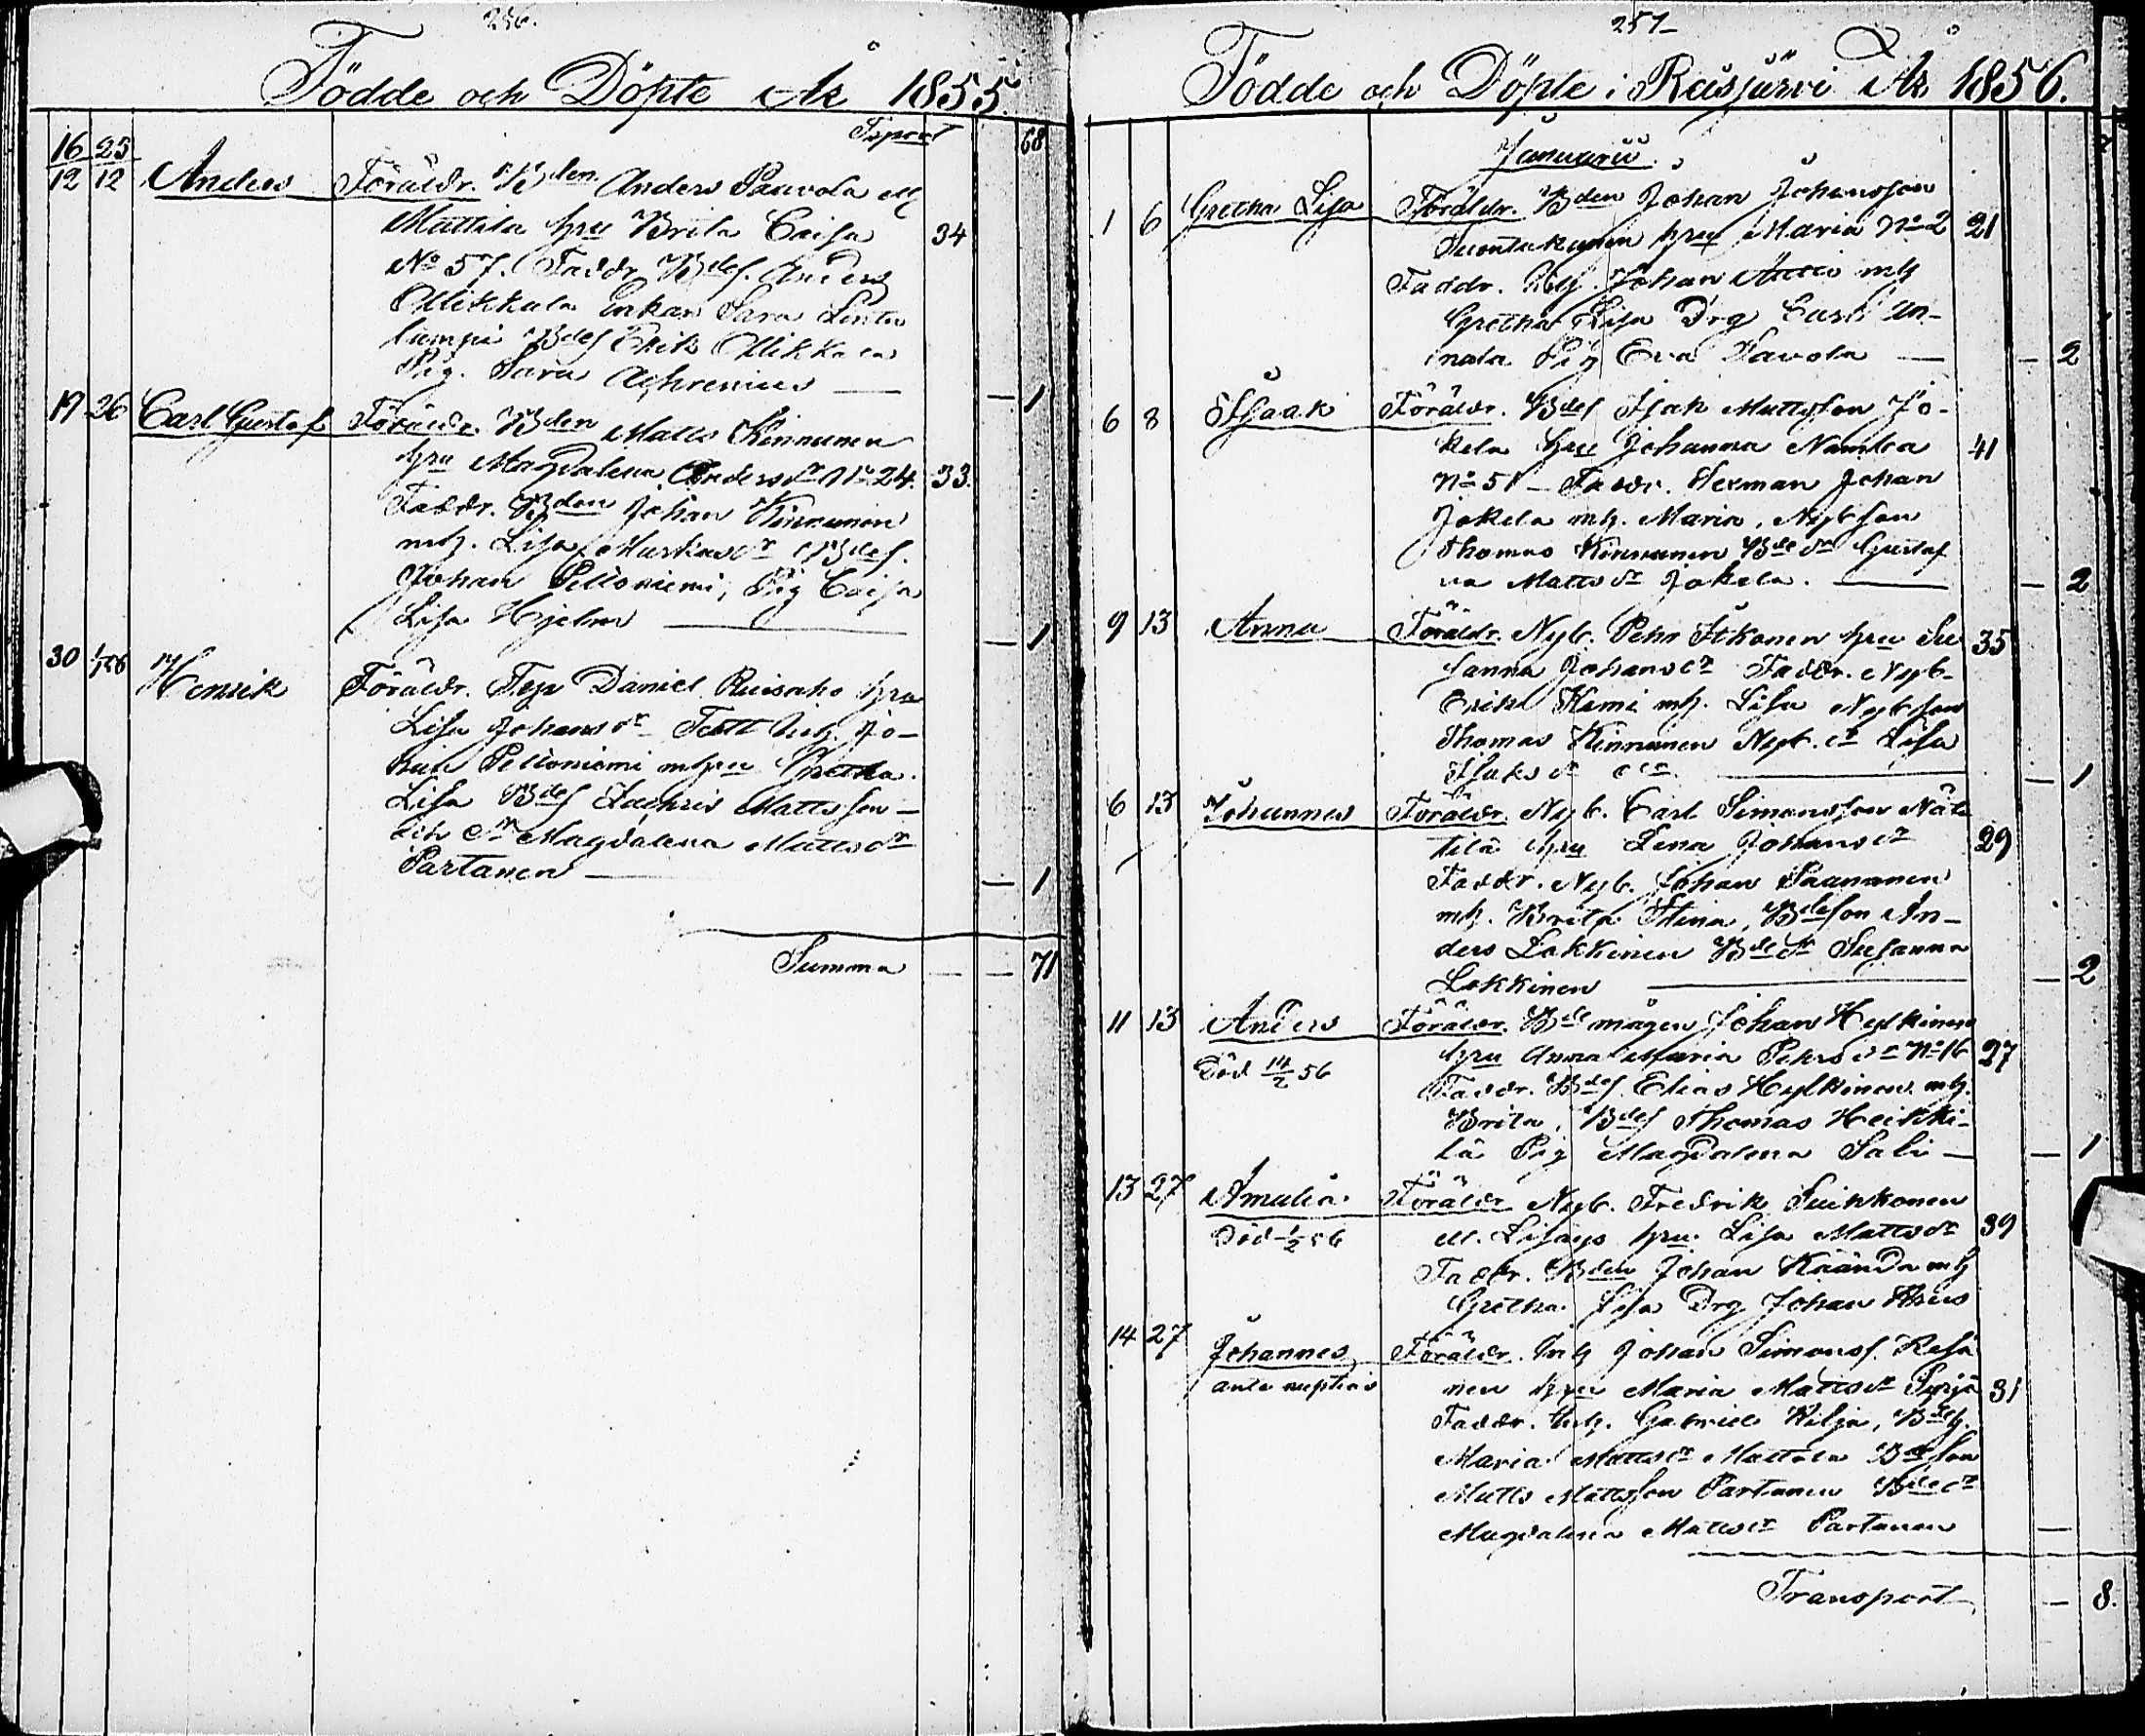 256.
Födde och Döpte År 1855.
Tsport 68
16 25
12 12 Anders Föräldr. Bden Anders Paavola
Mattila hru Brita Caisa 34
No 57. Faddr. Bdes. Anders
Ollikkala Enkan Sara
lampi Bdes Erik Ollikkala
Pig. Sara Ahrenius — — 1
19 26 Carl Gustaf Föräldr. Bden Matts Kinnunen
hru Magdalena Andersdr No 24. 33.
Faddr. Bden Johan Kinnunen
mh. Lisa Markusdr Bdes.
Johan Pelloniemi, Pig Caisa
Lisa Hjelm — — 1
30 1/1 56 Henrik Föräldr. Daniel Ruisaho hru
Lisa Johansdr Inh. Jo-
him Pelloniemi mhru Gretha
Lisa Bdes Zachris Mattsson
och dr Magdalena Mattsdr
Partanen — — 1
Summa — — 71
257
Födde och Döpte i Reisjärvi År 1856.
Januarii
1 6 Gretha Lisa Föräldr. Bden Johan Johansson
hru Maria No 2 21
Faddr. Johan mh
Gretha Lisa Drg Carl An-
nala Pig Eva Savola — — 2
6 8 Isaak Föräldr. Bdes Isak Mattsson Jo-
kela hru Johanna 41
No 51 — Faddr. Herman Johan
Jokela mh. Maria, Nybson
Thomas Kinnunen Bdedr Gustaf
va Mattsdr Jokela. — — 2
9 13 Anna Föräldr. Nyb. Pehr Itkonen hru Su 35
sanna Johansdr Faddr. Nyb.
Erik Kemi mh. Lisa Nybson
Thomas Kinnunen Nyb. dr Lisa
Isaksdr — — 1
6 13 Johannes Föräldr. Nyb. Carl Simonsson Nät
tilä hru Lena Johansdr 29
Faddr. Nyb. Johan Paananen
mh. Brita Stina, Bdeson An-
ders Lokkinen Bdedr Susanna
Lokkinen — — 2
11 13 Anders Föräldr. Bdemågen Johan Hylkinen
hru Anna Maria Pehrsdr No 16 27
Död 14/2 56 Faddr. Bdes Elias Hylkinen mh.
Brita, Bdes Thomas Heikki-
lä Pig Magdalena Sali — — 1
13 27 Amalia Föräldr. Nyb. Fredrik Suikkonen
Död 1/2 56 hru Lisa Mattsdr 39
Faddr. Bden Johan Kääntä mh
Gretha Lisa Drg Johan
14 27 Johannes Föräldr. Inh Johan Simonss.
ante nuptias nen hru Maria Mattsdr 31
Faddr. Inh. Gabriel Kilja,
Maria Mattsdr Mattila Bdeson
Matts Mattsson Partanen Bdedr
Magdalena Mattsdr Partanen —
Transport — 8.